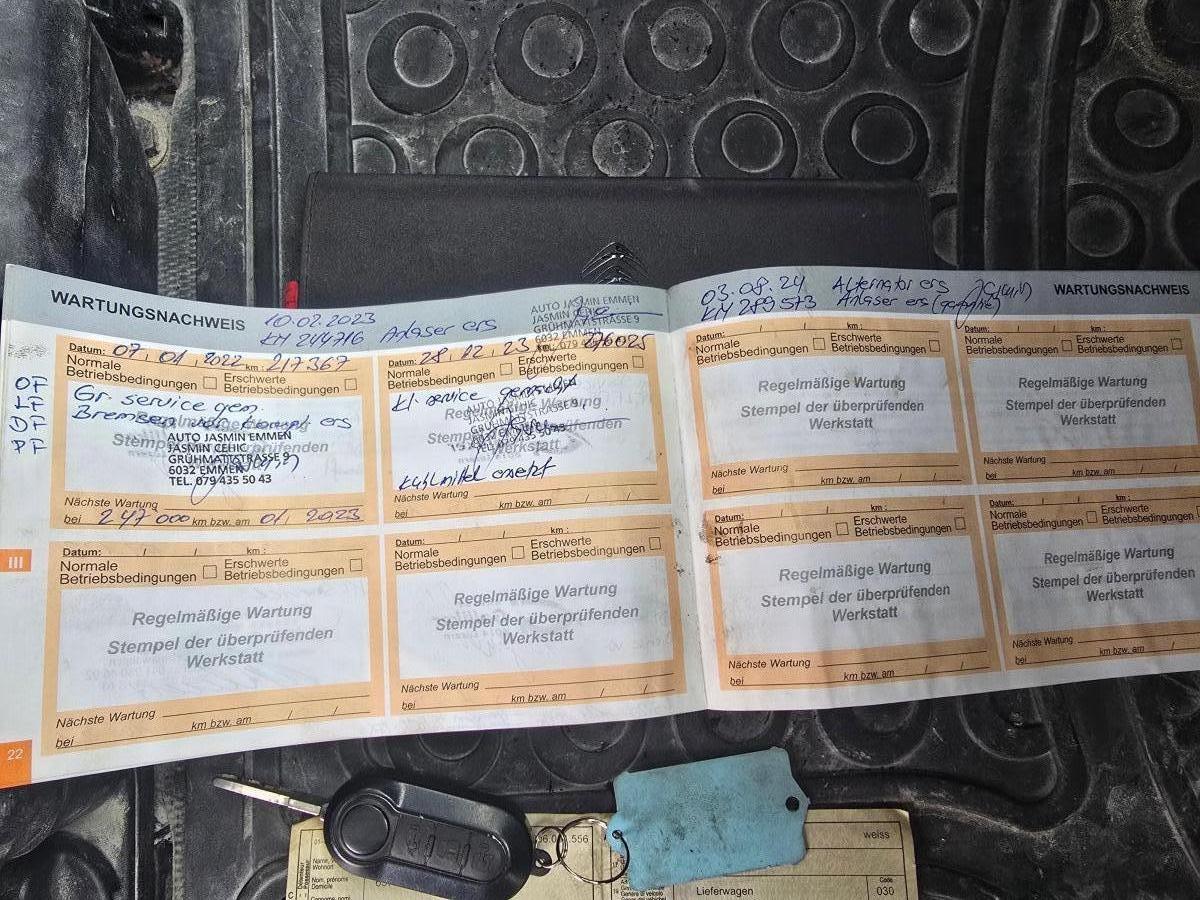 WARTUNGSNACHWEIS
10.02.2023
KM 244716 Anlaser ers
AUTO JASMIN EMMEN
JASMIN
GRÜHMATTSTRASSE 9
6032 EMMEN
OF
LF
DF
PF
Datum: 07.01.2022 km: 217367
Normale Betriebsbedingungen
Erschwerte Betriebsbedingungen
Gr. service gem.
Bremsen vor kompl ers
AUTO JASMIN EMMEN
JASMIN CEHIC
GRÜHMATTSTRASSE 9
6032 EMMEN
TEL. 079 435 50 43
Nächste Wartung
bei 247 000 km bzw. am 01. 2023
Datum: 28.12.23 276025
Normale Betriebsbedingungen
Erschwerte Betriebsbedingungen
kl. service gemacht
Kühlmittel ersetzt
Nächste Wartung
bei km bzw. am / /
Datum: / / km :
Normale Betriebsbedingungen
Erschwerte Betriebsbedingungen
Regelmäßige Wartung
Stempel der überprüfenden
Werkstatt
Nächste Wartung
bei km bzw. am / /
Datum: / / km :
Normale Betriebsbedingungen
Erschwerte Betriebsbedingungen
Regelmäßige Wartung
Stempel der überprüfenden
Werkstatt
Nächste Wartung
bei km bzw. am / /
III
22
03.08.24 Alternator ers
KM 289573 Anlaser ers
WARTUNGSNACHWEIS
Datum: / / km :
Normale Betriebsbedingungen
Erschwerte Betriebsbedingungen
Regelmäßige Wartung
Stempel der überprüfenden
Werkstatt
Nächste Wartung
bei km bzw. am / /
Datum: / / km :
Normale Betriebsbedingungen
Erschwerte Betriebsbedingungen
Regelmäßige Wartung
Stempel der überprüfenden
Werkstatt
Nächste Wartung
bei km bzw. am / /
Datum: / / km :
Normale Betriebsbedingungen
Erschwerte Betriebsbedingungen
Regelmäßige Wartung
Stempel der überprüfenden
Werkstatt
Nächste Wartung
bei km bzw. am / /
Datum: / / km :
Normale Betriebsbedingungen
Erschwerte Betriebsbedingungen
Regelmäßige Wartung
Stempel der überprüfenden
Werkstatt
Nächste Wartung
bei km bzw. am / /
556
weiss
Name,
Wohnort
Nom, prénoms
Domicile
Lieferwagen
Code
030